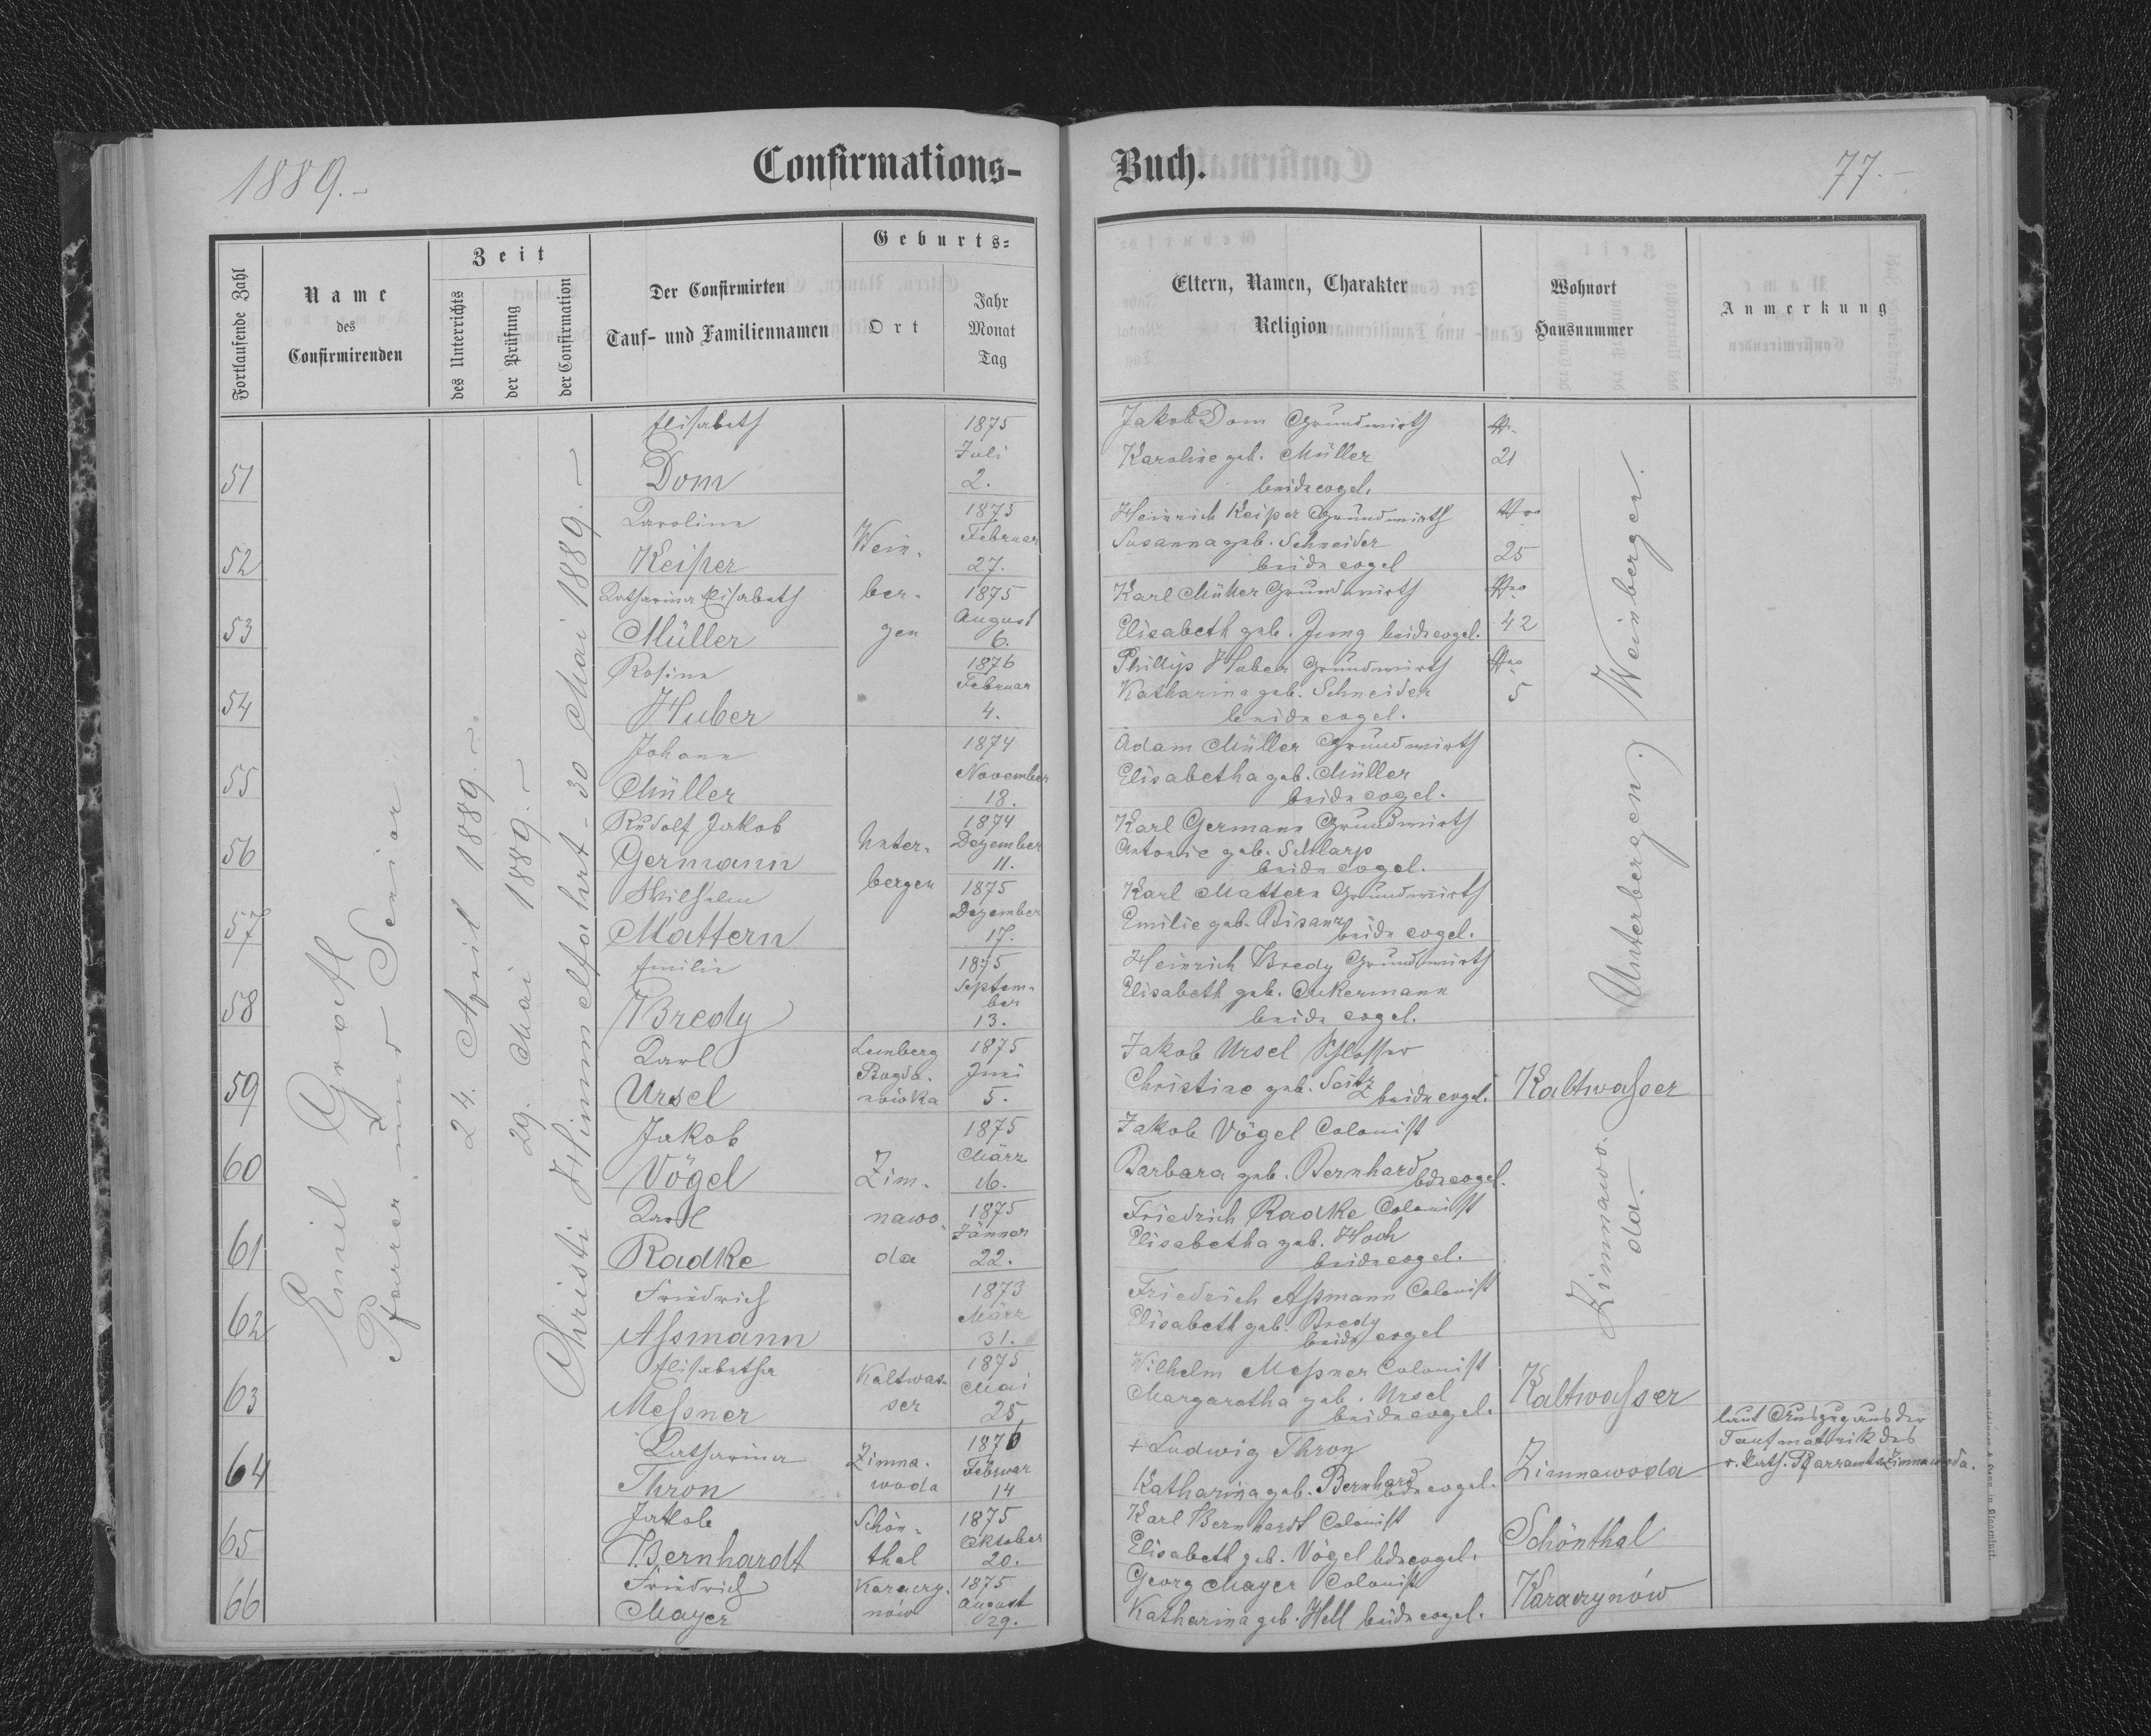 1889.-
Confirmations-
Buch.
77.-
Fortlaufende Zahl
Name
des
Confirmirenden
Zeit
des Unterrichts
der Prüfung
der Confirmation
Der Confirmirten
Tauf- und Familiennamen
Geburts-
Ort
Jahr
Monat
Tag
Eltern, Namen, Charakter
Religion
Wohnort
Hausnummer
Anmerkung
Emil Gross
Pfarrer und Senior
24. April 1889.-
29. Mai 1889.-
Christi Himmelfahrt - 30 Mai 1889.-
51
Elisabeth
Dom
1875
Juli
2.
Jakob Dom Grundwirth
Karoline geb. Müller
beide evgel.
21
52
Karolina
Keiper
1875
Februar
27.
Heinrich Keiper Grundwirth
Susanna geb. Schneider
beide evgel
25
53
Katharina Elisabeth
Müller
Wein-
ber-
gen
1875
August
6.
Karl Müller Grundwirth
Elisabeth geb. Jung beide evgel.
42
54
Rosina
Huber
1876
Februar
4.
Phillip Huber Grundwirth
Katharina geb. Schneider
beide evgel.
5
Weinbergen.
55
Johann
Müller
1874
November
18.
Adam Müller Grundwirth
Elisabetha geb. Müller
beide evgel.
56
Rudolf Jakob
Germann
Unter-
bergen
1874
Dezember
11.
Karl Germann Grundwirth
Antonie geb. Schlarp
beide evgel.
57
Wilhelm
Mattern
1875
Dezember
17.
Karl Mattern Grundwirth
Emilie geb. Bisanz
beide evgel.
58
Emilie
Bredy
1875
Septem-
ber
13.
Heinrich Bredy Grundwirth
Elisabeth geb. Ackermann
beide evgel.
Unterbergen
59
Karl
Ursel
Lemberg
Bogda-
nówka
1875
Juni
5.
Jakob Ursel Schlosser
Christine geb. Seitz
beide evgel.
Kaltwasser
60
Jakob
Vögel
1875
März
16.
Jakob Vögel Colonist
Barbara geb. Bernhard bde evgel.
61
Karl
Radke
Zim-
nawo-
da
1875
Jänner
22.
Friedrich Radke Colonist
Elisabetha geb. Hoch
beide evgel.
62
Friedrich
Assmann
1873
März
31.
Friedrich Assmann Colonist
Elisabeth geb. Bredy
beide evgel
Zimnawo-
da.
63
Elisabetha
Messner
Kaltwas-
ser
1875
Mai
25
Wilhelm Messner Colonist
Margaretha geb. Ursel
beide evgel.
Kaltwasser
64
Katharina
Thron
Zimna-
woda
1876
Februar
14
+ Ludwig Thron
Katharina geb. Bernhard bde evgel.
Zimnawoda
laut Auszug aus der
Taufmatrik des
r. kath. Pfarramts Zimnawoda.
65
Jakob
Bernhardt
Schön-
thal
1875
Oktober
20.
Karl Bernhardt Colonist
Elisabeth geb. Vögel bde evgel.
Schönthal
66
Friedrich
Mayer
Karaczy-
nów
1875
August
29.
Georg Mayer Colonist
Katharina geb. Hell beide evgel.
Karaczynów